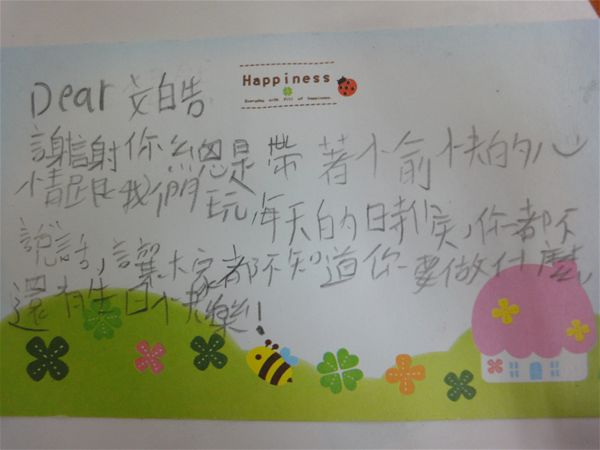 Happiness
Everyday with fill of happiness.
Dear 艾皓
謝謝你總是帶著愉快的心
情跟我們玩,每天的時候,你都不
說話,讓大家都不知道你要做什麼,
還有生日快樂!